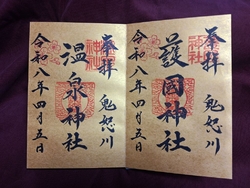 奉拝
鬼怒川
護國神社
令和八年四月五日
奉拝
鬼怒川
温泉神社
令和八年四月五日